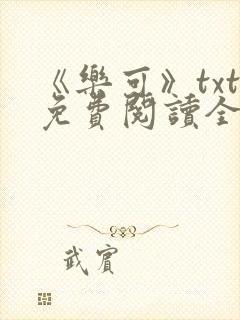 《樂可》txt
免費閱讀全
武賓